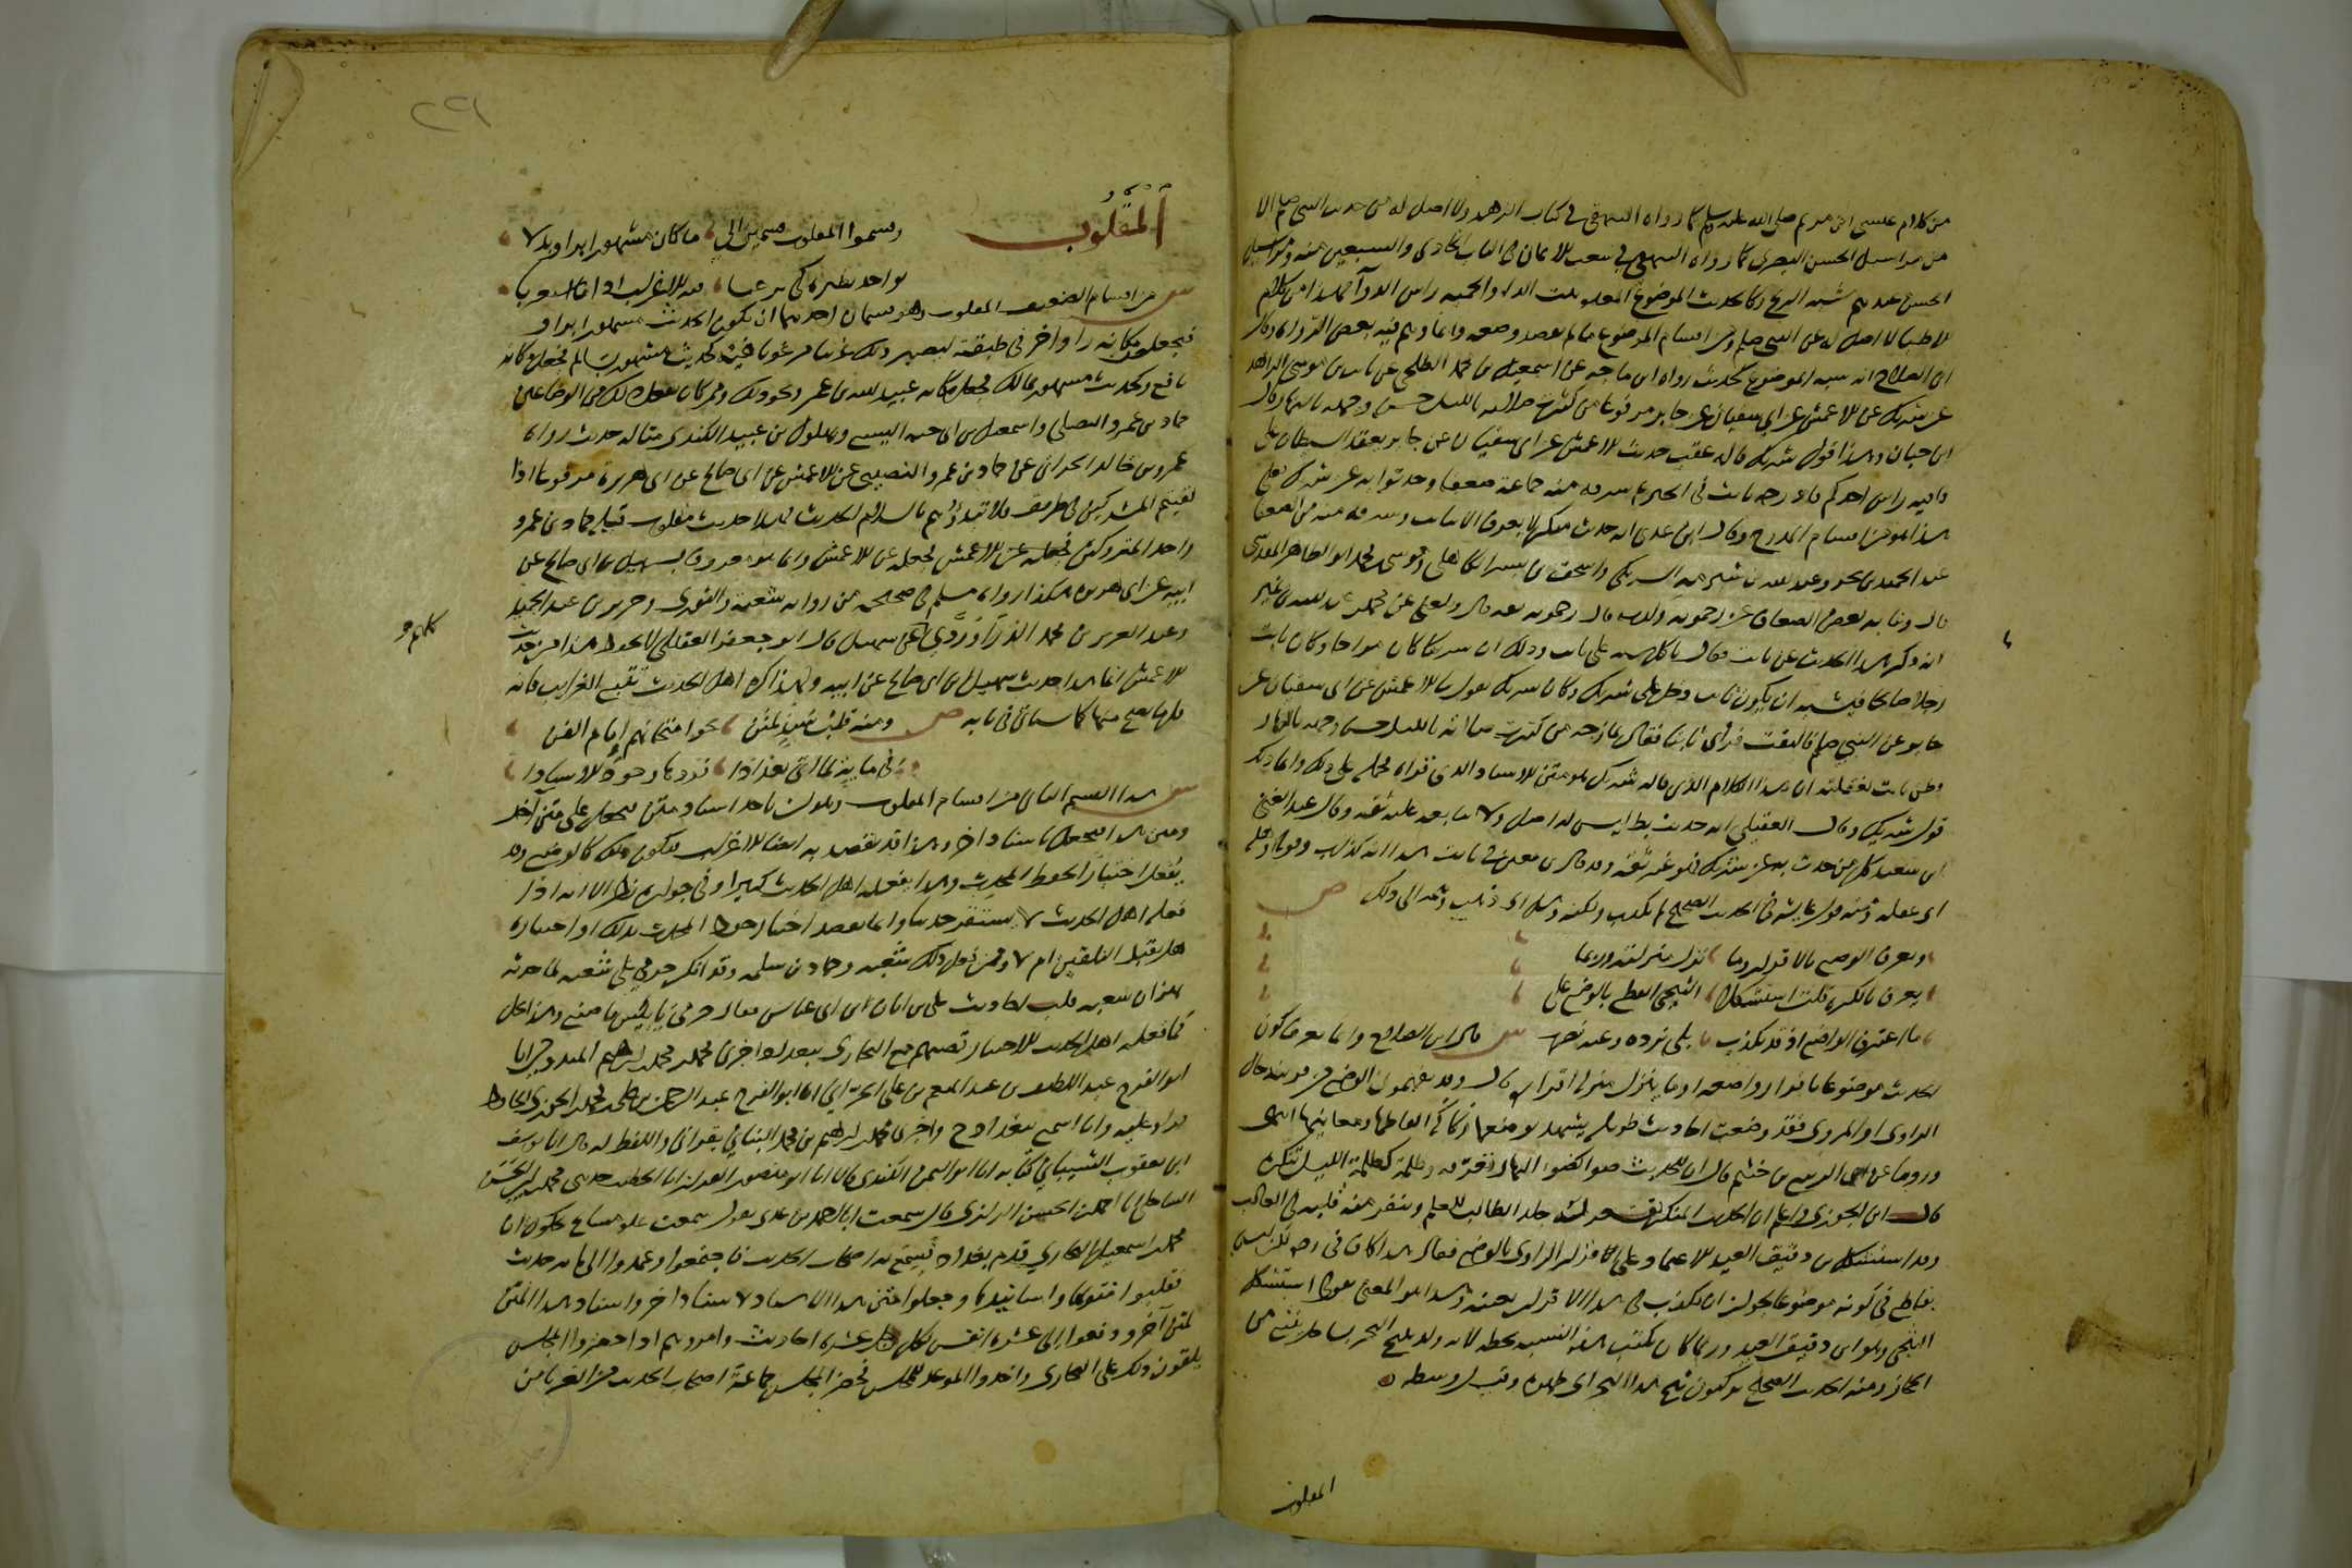 من كلام عيسى ابن مريم صلى الله عليه وسلم كما رواه البيهقي في كتاب الزهد ولا اصل له من حديث النبي صلعم الا
من مراسيل الحسن البصري كما رواه البيهقي في شعب الايمان في الباب الحادي والسبعين منه ومراسيل
الحسن عندهم شبه الريح وكالحديث الموضوع المعدة بيت الداء والحمية راس الدوآ فهذا من كلام
الاطبا لا اصل له عن النبي صلعم ومن اقسام الموضوع ما لم يقصد وضعه وانما وهم فيه بعض الرواه وقال
ابن الصلاح انه شبه الموضوع كحديث رواه ابن ماجه عن اسمعيل بن محمد الطلحي عن ثابت بن موسى الزاهد
عن شريك عن الاعمش عن ابي سفيان عن جابر مرفوعا من كثرت صلاته بالليل حسن وجهه بالنهار قال
ابن حبان وهذا قول شريك قاله عقب حديث الاعمش عن ابي سفيان عن جابر يعقد الشيطان على
قافيه راس احدكم فادرجه ثابت في الخبر ثم سرقه منه جماعة ضعفا وحدثوا به عن شريك فعلى
هذا هو من اقسام المدرج وقال ابن عدي انه حديث منكر لا يعرف الا بثابت وسرقه منه من الضعفا
عبد الحميد بن بحر وعبد الله بن شبرمه الشريكي واسحق بن بشر الكاهلي وموسى بن محمد ابو الطاهر المقدسي
قال وثنا به بعض الضعاف عن زحمويه وكذب فان زحمويه ثقه قال وبلغني عن محمد بن عبد الله بن نمير
انه ذكر هذا الحديث عن ثابت فقال باطل شبه على ثابت وذلك ان شريكا كان مزاحا وكان ثابت
رجلا صالحا فيشبه ان يكون ثابت دخل على شريك وكان شريك يقول ثنا الاعمش عن ابي سفيان عن
جابر عن النبي صلعم فالتفت فراى ثابتا فقال يمازحه من كثرت صلاته بالليل حسن وجهه بالنهار
فظن ثابت لغفلته ان هذا الكلام الذي قاله شريك هو متن الاسناد الذي قراه فحمله على ذلك وانما ذلك
قول شريك وقال العقيلي انه حديث باطل ليس له اصل ولا يتابعه عليه ثقه وقال عبد الغني
ابن سعيد كل من حدث به عن شريك فهو غير ثقه
اي غفله ومنه قول عايشه في الحديث الصحيح لم يكذب ولكنه وهل اي ذهب وهمه الى ذلك ص
ويعرف الوضع بالاقرار وما نزل منزلته وربما
يعرف بالركه قلت استشكلا الثبجي القطع بالوضع على
ما اعترف الواضع اذ قد يكذب بلى نرده وعنه نضرب ش قال ابن الصلاح وانما يعرف كون
الحديث موضوعا باقرار واضعه او ما يتنزل منزلة اقراره قال وقد يفهمون الوضع من قرينه حال
الراوي او المروي فقد وضعت احاديث طويله يشهد بوضعها ركاكة الفاظها ومعانيها انتهى
وروينا عن الربيع بن خثيم قال ان للحديث ضوا كضوء النهار نعرفه وظلمة كظلمة الليل تنكره
قال ابن الجوزي واعلم ان الحديث المنكر يقشعر له جلد الطالب للعلم وينفر منه قلبه في الغالب
وقد استشكل بن دقيق العيد الاعتماد على اقرار الراوي بالوضع فقال هذا كاف في رده لكن ليس
بقاطع في كونه موضوعا لجواز ان يكذب في هذا الاقرار بعينه وهذا هو المعني بقولي استشكل
الثبجي وهو ابن دقيق العيد وربما كان يكتب هذه النسبه بخطه لانه ولد بثبج البحر بساحل ينبع من
الحجاز ومنه الحديث الصحيح يركبون ثبج هذا البحر اي ظهره وقيل وسطه
المقلوب
٢٩
المَقْلُوب
وقسموا المقلوب قسمين الى ما كان مشهورا براو ابدلا
بواحد نظيره كي يرغبا فيه للاغراب اذا ما استغربا
ش من اقسام الضعيف المقلوب وهو قسمان احدهما ان يكون الحديث مشهورا براو
فيجعل مكانه راو اخر في طبقته ليصير بذلك غريبا مرغوبا فيه كحديث مشهور بسالم فجعل مكانه
نافع وكحديث مشهور بمالك فجعل مكانه عبيد الله بن عمر ونحو ذلك وممن كان يفعل ذلك من الوضاعين
حماد بن عمرو النصيبي واسمعيل بن ابي حيه اليسع وبهلول بن عبيد الكندي مثاله حديث رواه
عمرو بن خالد الحراني عن حماد بن عمرو النصيبي عن الاعمش عن ابي صالح عن ابي هريرة مرفوعا اذا
لقيتم المشركين في طريق فلا تبدؤهم بالسلام الحديث فهذا حديث مقلوب قلبه حماد بن عمرو
احد المتروكين فجعله عن الاعمش وانما هو معروف بسهيل بن ابي صالح عن
ابيه عن ابي هريره هكذا رواه مسلم في صحيحه من رواية شعبة والثوري وجرير بن عبد الحميد
وعبد العزيز بن محمد الدَّرَاوَرْدِي كلهم عن سهيل قال ابو جعفر العقيلي لا يحفظ هذا من حديث
الاعمش انما هذا حديث سهيل بن ابي صالح عن ابيه ولهذا كره اهل الحديث تتبع الغرايب فانه
قل ما يصح منها كما سياتي في بابه ص ومنه قلب سند لمتن نحو امتحانهم امام الفن
في مايةٍ لما اتى بغداذا فردها وجود الاسنادا
ش هذا القسم الثاني من اقسام المقلوب وهو ان يوخذ اسناد متن فيجعل على متن آخر
ومتن هذا فيجعل باسناد اخر وهذا قد يقصد به ايضا الاغراب فيكون ذلك كالوضع وقد
يُفعل اختبارًا لحفظ المحدث وهذا يفعله اهل الحديث كثيرا وفي جوازه نظر الا انه اذا
فعله اهل الحديث لا يستقر حديثا وانما يقصد اختبار حفظ المحدث بذلك او اختباره
هل يقبل التلقين ام لا وممن فعل ذلك شعبه وحماد بن سلمه وقد انكر حرمي على شعبه لما حدثه
بهز ان شعبه قلب احاديث على ابان ابن ابي عياش فقال حرمي يابئس ما صنع وهذا يحل
كما فعله اهل الحديث للاختبار قصتهم مع البخاري ببغداد اخبرني محمد بن محمد بن ابراهيم الميدومي انا
ابو الفرج عبد اللطيف بن عبد المنعم بن علي الحراني انا ابو الفرج عبد الرحمن بن علي بن محمد الجوزي الحافظ
قراه عليه وانا اسمع ببغداد ح واخبرنا محمد بن ابراهيم بن محمد البياني بقراتي واللفظ له قال انا يوسف
ابن يعقوب الشيباني كتابه انا ابو اليمن الكندي قال انا ابو منصور القزاز انا الخطيب حدثني محمد بن الحسن
الساحلي انا احمد بن الحسن الرازي قال سمعت ابا احمد بن عدي يقول سمعت عدة مشايخ يحكون ان
محمد بن اسمعيل البخاري قدم بغداد فسمع به اصحاب الحديث فاجتمعوا وعمدوا الى مايه حديث
فقلبوا متونها واسانيدها وجعلوا متن هذا الاسناد لاسناد اخر واسناد هذا المتن
لمتن آخر ودفعوا الى عشرة انفس لكل رجل عشره احاديث وامروهم اذا حضروا المجلس
يلقون ذلك على البخاري واخذوا الموعد للمجلس فحضر المجلس جماعة اصحاب الحديث من الغربا من
كلهم